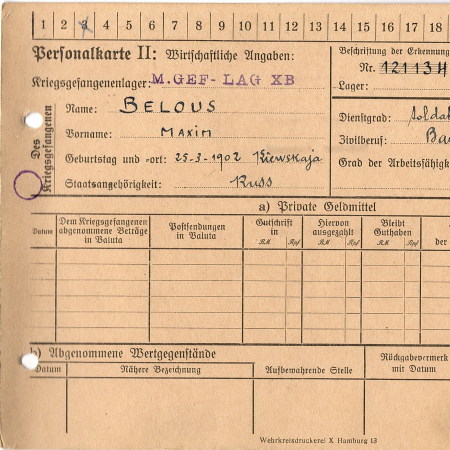 1 2 3 4 5 6 7 8 9 10 11 12 13 14 15 16 17 18
Personalkarte II: Wirtschaftliche Angaben:
Beschriftung der Erkennung
Nr. 121134
Kriegsgefangenenlager: M.GEF-LAG XB
Lager:
Des Kriegsgefangenen
Name: BELOUS
Dienstgrad: Soldat
Vorname: MAXIM
Zivilberuf: Ba
Geburtstag und -ort: 25-3-1902 Kiewskaja
Grad der Arbeitsfähigk
Staatsangehörigkeit: Russ
a) Private Geldmittel
Datum
Dem Kriegsgefangenen abgenommene Beträge in Valuta
Postsendungen in Valuta
Gutschrift in RM Rpf
Hiervon ausgezahlt RM Rpf
Bleibt Guthaben RM Rpf
der
b) Abgenommene Wertgegenstände
Datum
Nähere Bezeichnung
Aufbewahrende Stelle
Rückgabevermerk mit Datum
Wehrkreisdruckerei X Hamburg 13